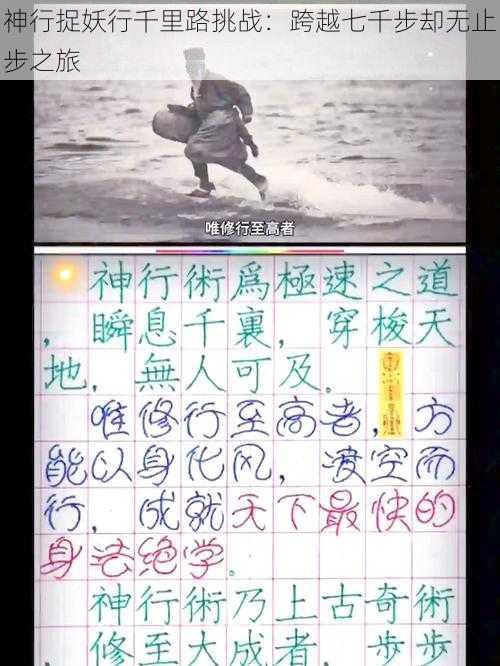 神行捉妖行千里路挑战：跨越七千步却无止
步之旅
唯修行至高者
神行術爲極速之道
，瞬息千裏，穿梭天
地，無人可及。
唯修行至高者，方
能以身化风，凌空而
行，成就天下最快的
身法绝学。
神行術乃上古奇術
，修至大成者，步步